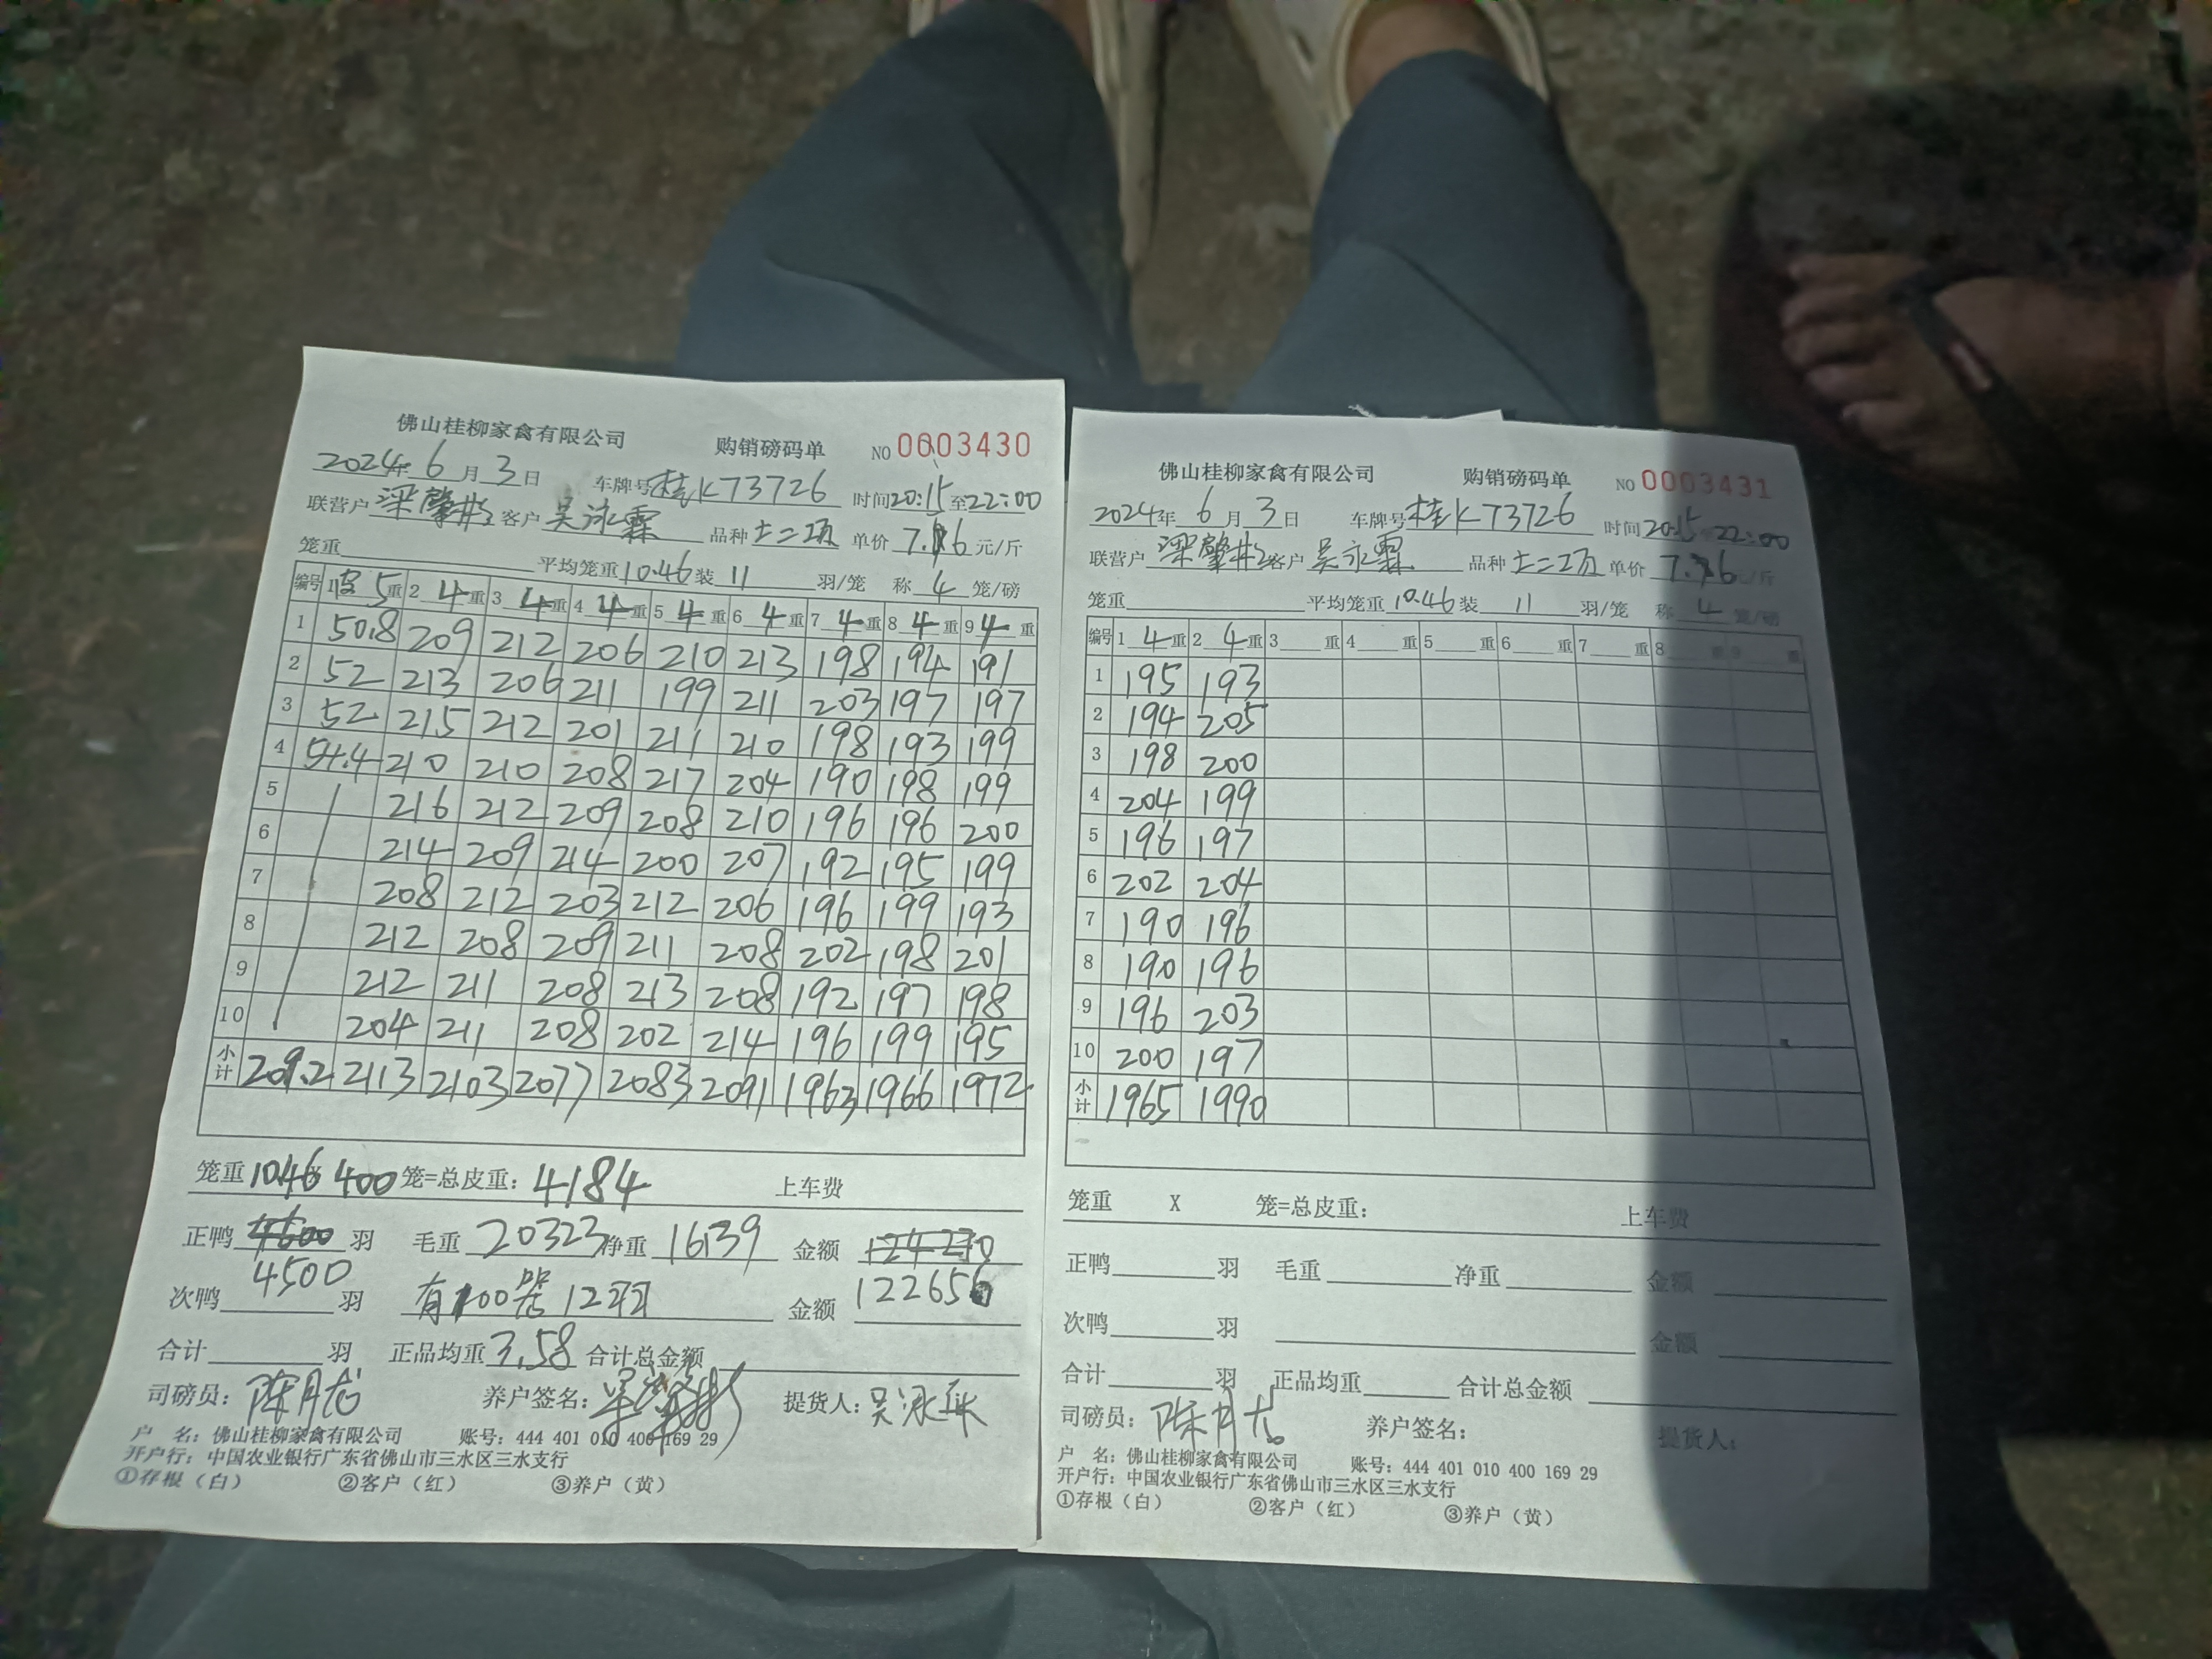 佛山桂柳家禽有限公司 购销磅码单 NO 0003430
2024年 6 月 3 日 车牌号 桂K73726 时间 20:15 至 22:00
联营户 梁肇 客户 吴泳霖 品种 土二项 单价 7.6 元/斤
笼重 平均笼重 10.46 装 11 羽/笼 称 4 笼/磅
编号 1 5 重 2 4 重 3 4 重 4 4 重 5 4 重 6 4 重 7 4 重 8 4 重 9 4 重
1 50.8 209 212 206 210 213 198 194 191
2 52 213 206 211 199 211 203 197 197
3 52 215 212 201 211 210 198 193 199
4 54.4 210 210 208 217 204 190 198 199
5 216 212 209 208 210 196 196 200
6 214 209 214 200 207 192 195 199
7 208 212 203 212 206 196 199 193
8 212 208 209 211 208 202 198 201
9 212 211 208 213 208 192 197 198
10 204 211 208 202 214 196 199 195
小计 209.2 2113 2103 2077 2083 2091 1963 1966 1972
笼重 10.46 400 笼=总皮重: 4184 上车费
正鸭 4600 羽 毛重 20323 净重 16139 金额 124270
4500
次鸭 羽 有100笼12羽 金额 122656
合计 羽 正品均重 3.58 合计总金额
司磅员: 陈月龙 养户签名: 提货人: 吴泳
户 名: 佛山桂柳家禽有限公司 账号: 444 401 010 400 169 29
开户行: 中国农业银行广东省佛山市三水区三水支行
①存根（白） ②客户（红） ③养户（黄）
佛山桂柳家禽有限公司 购销磅码单 NO 0003431
2024年 6 月 3 日 车牌号 桂K73726 时间 20:15 22:00
联营户 梁肇 客户 吴泳霖 品种 土二项 单价 7.6 元/斤
笼重 平均笼重 10.46 装 11 羽/笼 称 4 笼/磅
编号 1 4 重 2 4 重 3 重 4 重 5 重 6 重 7 重 8 重 9 重
1 195 193
2 194 205
3 198 200
4 204 199
5 196 197
6 202 204
7 190 196
8 190 196
9 196 203
10 200 197
小计 1965 1990
笼重 X 笼=总皮重: 上车费
正鸭 羽 毛重 净重 金额
次鸭 羽 金额
合计 羽 正品均重 合计总金额
司磅员: 陈月龙 养户签名: 提货人:
户 名: 佛山桂柳家禽有限公司 账号: 444 401 010 400 169 29
开户行: 中国农业银行广东省佛山市三水区三水支行
①存根（白） ②客户（红） ③养户（黄）